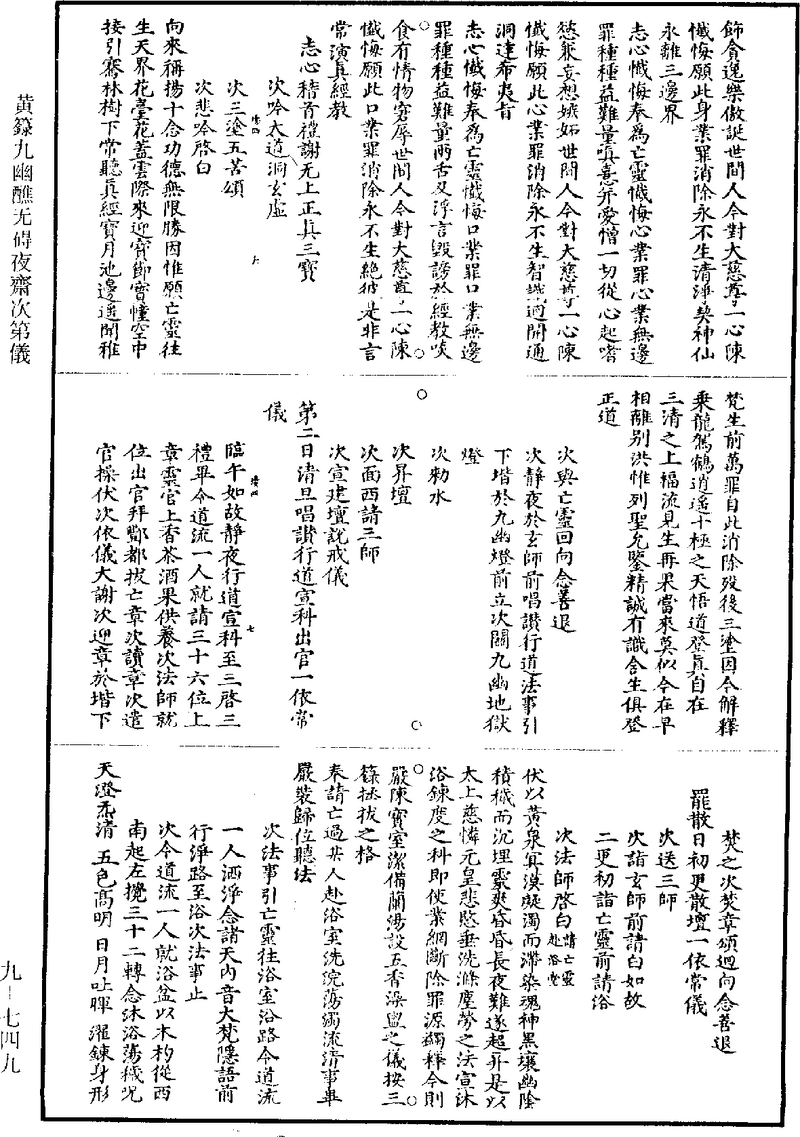 黄籙九幽醮无碍夜齋次第儀
九－七四九
飾貪逸樂傲誕世間人今對大慈尊一心陳
懺悔願此身業罪消除永不生清淨契神仙
永離三邊界
志心懺悔奉為亡靈懺悔心業罪心業無邊
罪種種益難量嗔恚并愛憎一切從心起嗜
慾躭妄想嫉妬世間人今對大慈尊一心陳
懺悔願此心業罪消除永不生智識適開通
洞達希夷旨
志心懺悔奉為亡靈懺悔口業罪口業無邊
罪種種益難量兩舌及浮言毀謗於經教啖
食有情物罵辱世間人今對大慈尊一心陳
懺悔願此口業罪消除永不生絕彼是非言
常演真經教
志心稽首禮謝无上正真三寶
次吟大道洞玄虛
次三塗五苦頌
次悲吟啓白
向來稱揚十念功德無限勝因惟願亡靈往
生天界花臺花蓋雲際來迎寶節寶幢空中
接引騫林樹下常聽真經寶月池邊遥聞雅
梵生前萬罪自此消除歿後三塗因今解釋
乘龍駕鶴逍遥十極之天悟道登真自在
三清之上福流見生再果當來莫似今在早
相離別洪惟列聖允鑒精誠有識含生俱登
正道
次與亡靈回向念善退
次靜夜於玄師前唱讚行道法事引
下堦於九幽燈前立次關九幽地獄
燈
次勑水
次昇壇
次面西請三師
次宣建壇說戒儀
第二日清旦唱讚行道宣科出官一依常
儀
臨午如故靜夜行道宣科至三啓三
禮畢令道流一人就請三十六位上
章靈官上香茶酒果供養次法師就
位出官拜酆都拔亡章次讀章次遣
官操伏次依儀大謝次迎章於堦下
焚之次焚章頌迴向念善退
罷散日初更散壇一依常儀
次送三師
次詣玄師前請白如故
二更初詣亡靈前請浴
次法師啓白請亡靈赴浴堂
伏以黄泉冥漠凝濁而滯染魂神黑壤幽陰
積穢而沉埋靈爽昏昏長夜難遂超昇是以
太上慈憐元皇悲愍垂洗滌塵勞之法宣沐
浴鍊度之科即使業網斷除罪源蠲釋今則
嚴陳寶室潔備蘭湯設五香澡盥之儀按三
籙拯拔之格
奉請亡過某人赴浴室洗浣蕩濁流清事畢
嚴裝歸位聽法
次法事引亡靈往浴室浴路令道流
一人洒淨念諸天内音大梵隱語前
行淨路至浴次法事止
次令道流一人就浴盆以木杓從西
南起左攪三十二轉念沐浴蕩穢咒
天澄炁清 五色高明 日月吐暉 濯鍊身形